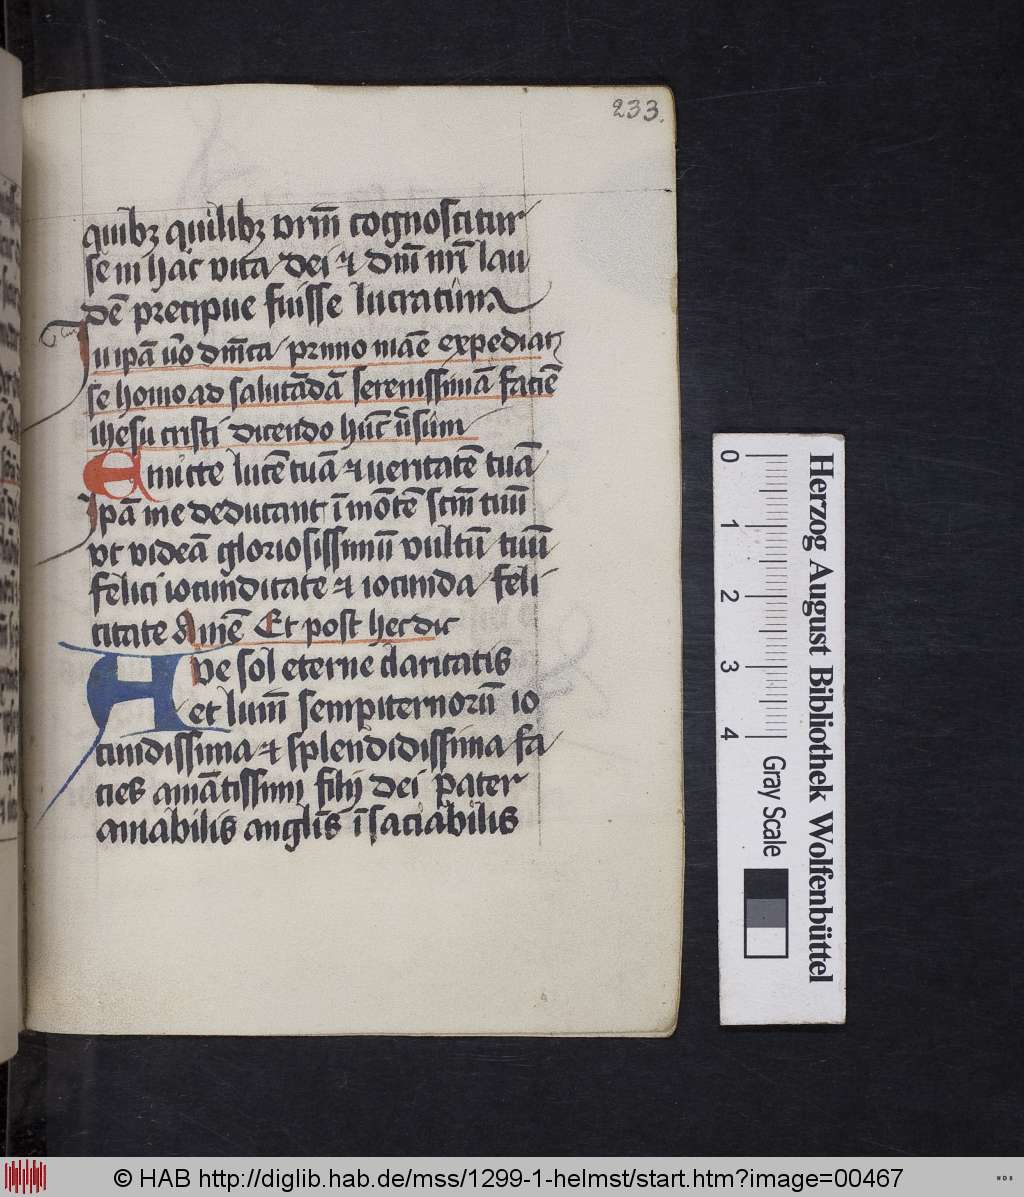 233.
quibꝫ quilibꝫ vrm̄ cognoscitur
se in hac vita dei ⁊ dnī nrī lau
dē precipue fuisse lucratum
In ipā v̓o dn̄ica primo mane expediat
se homo ad salutādā serenissimā faciē
ihesu cristi dicendo hūc v̓sum
Emitte lucē tuā ⁊ veritatē tuā
ipā me deducant ī mōtē scm̄ tuū
vt videā gloriosissimū vultū tuū
felici iocunditate ⁊ iocunda feli
citate Amē Et post hec dic
Ave sol eterne claritatis
et lumē sempiternorū io
cundissima ⁊ splendidissima fa
cies amātissimi filij dei pater
amabilis anglis īsaciabilis
0 1 2 3 4
Gray Scale
Herzog August Bibliothek Wolfenbüttel
© HAB http://diglib.hab.de/mss/1299-1-helmst/start.htm?image=00467